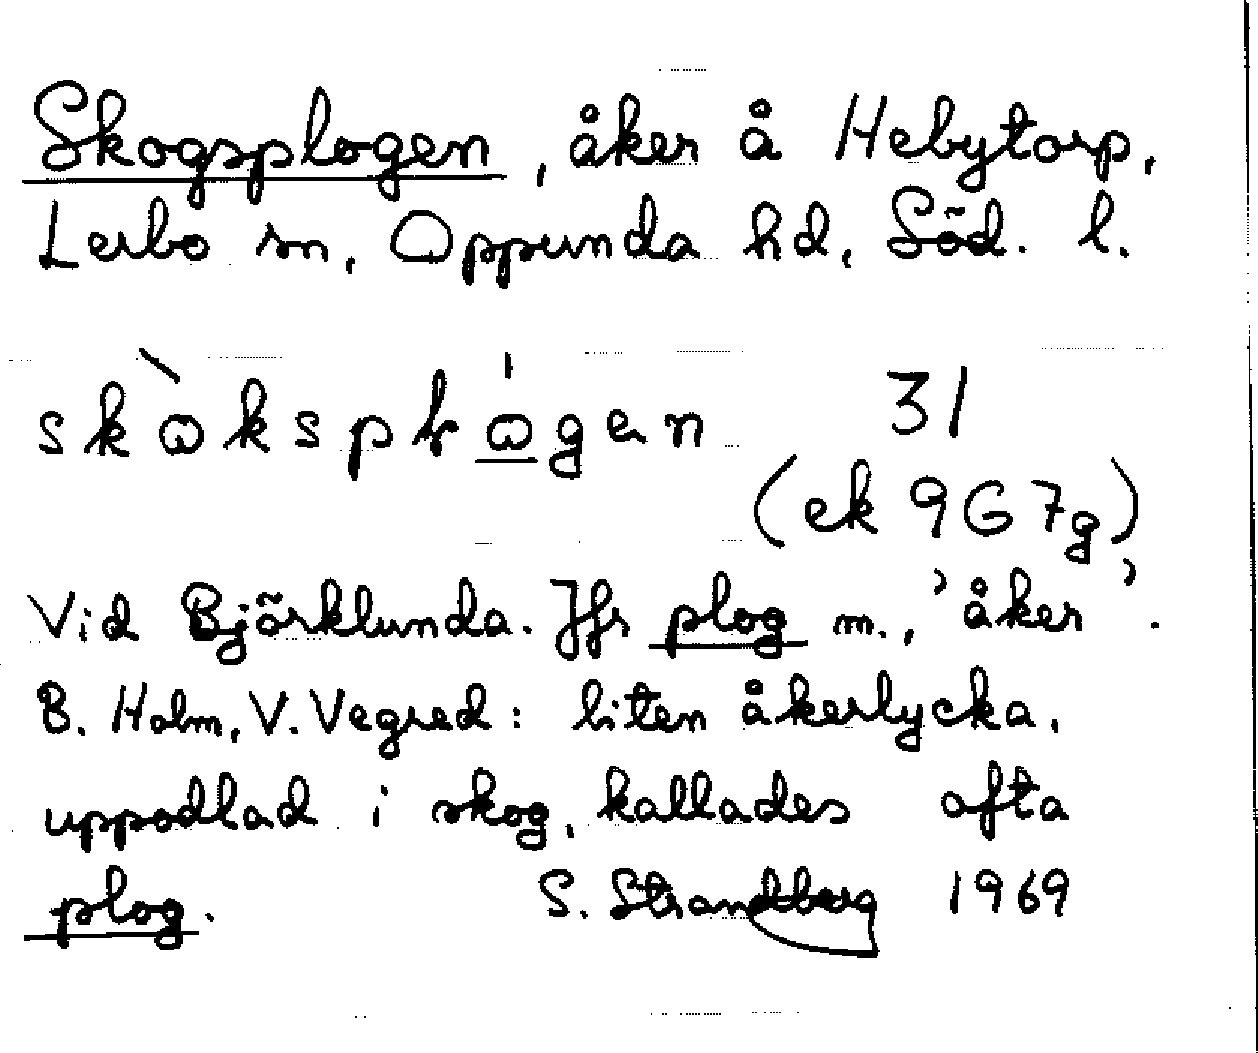 Skogsplogen, åker å Hebytorp,
Lerbo sn, Oppunda hd, Söd. l.
31
(ek 9G7g)
Vid Björklunda. Jfr plog m., 'åker'.
B. Holm, V. Vegred: liten åkerlycka,
uppodlad i skog, kallades ofta
plog. S. Strandberg 1969